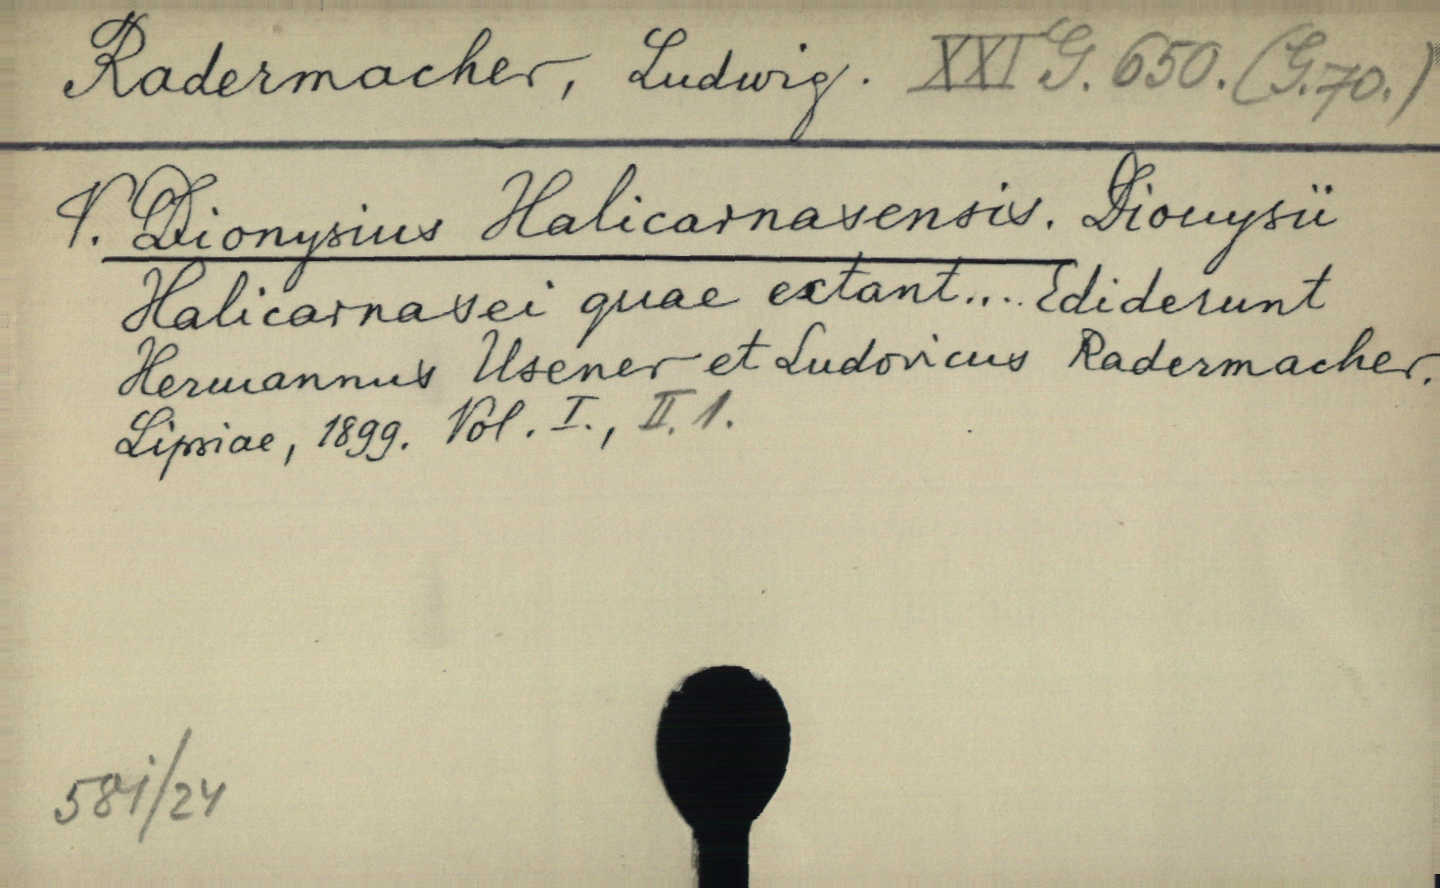 Radermacher, Ludwig. XXI G. 650. (G. 70.)
V. Dionysius Halicarnasensis. Dionysii
Halicarnasei quae extant.... Ediderunt
Hermannus Usener et Ludovicus Radermacher.
Lipsiae, 1899. Vol. I., II. 1.
581/24